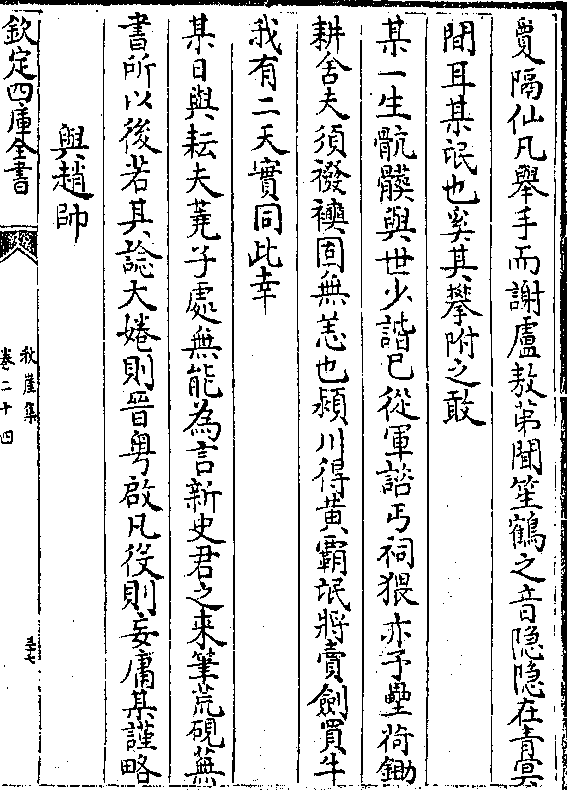 賈隔仙凡舉手而謝盧敖第聞笙鶴之音隐隐在青冥
間耳某氓也奚其攀附之敢
某一生骯髒與世少諧巳從軍諮丐祠猥亦予壘荷鋤
耕舍夫須襏襫固無恙也潁川得黄霸氓將賣劍買牛
我有二天實同此幸
某日與耘夫蕘子處無能為言新史君之来筆荒硯蕪
書所以後若其諗大婘則晉粤啟凡役則妄庸某謹略
與趙帥
欽定四庫全書
秋崖集
卷二十四